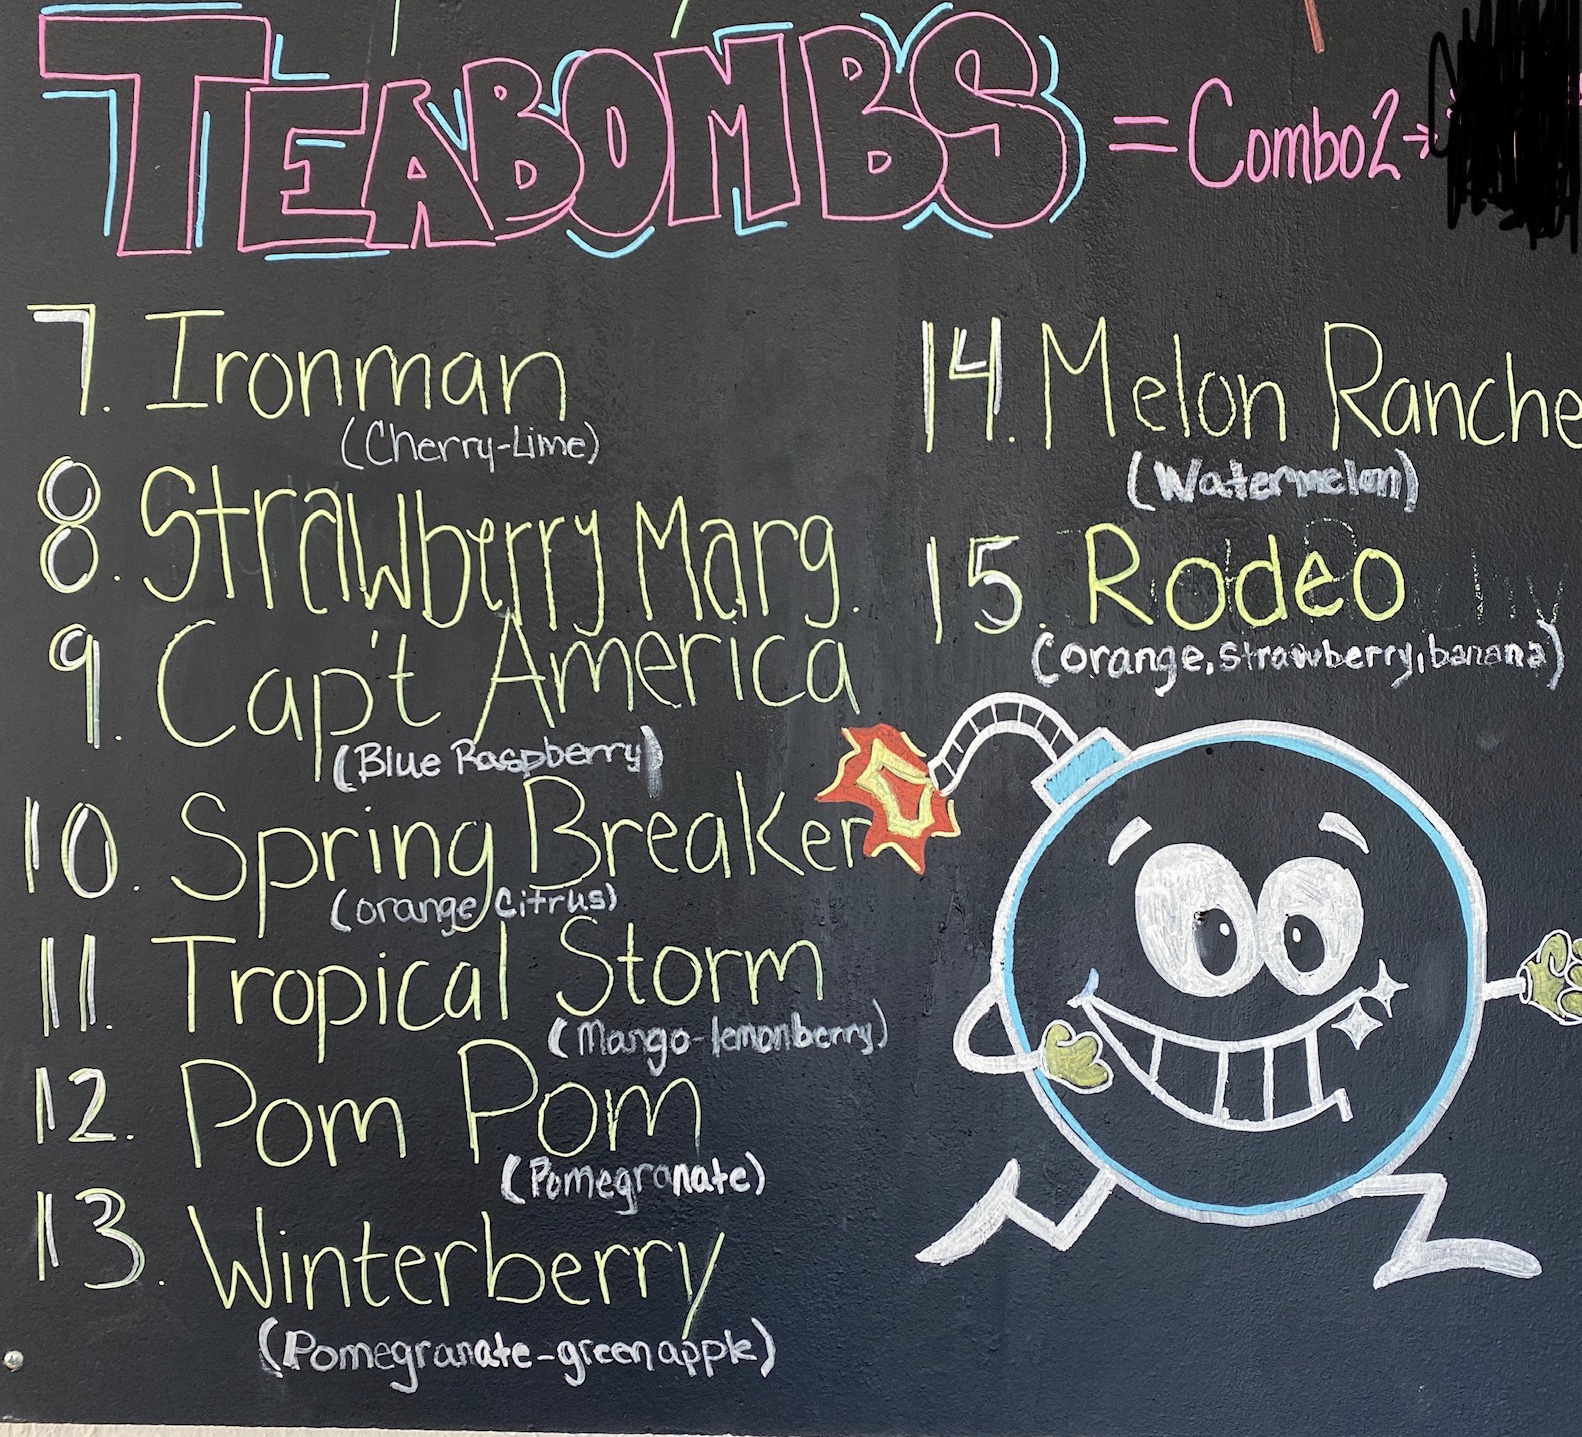 TEABOMBS = Combo2→
7. Ironman
(Cherry-Lime)
8. Strawberry Marg.
9. Cap't America
(Blue Raspberry)
10. Spring Breaker
(orange/citrus)
11. Tropical Storm
(Mango-lemonberry)
12. Pom Pom
(Pomegranate)
13. Winterberry
(Pomegranate-green apple)
14. Melon Ranche
(Watermelon)
15. Rodeo
(orange, strawberry, banana)